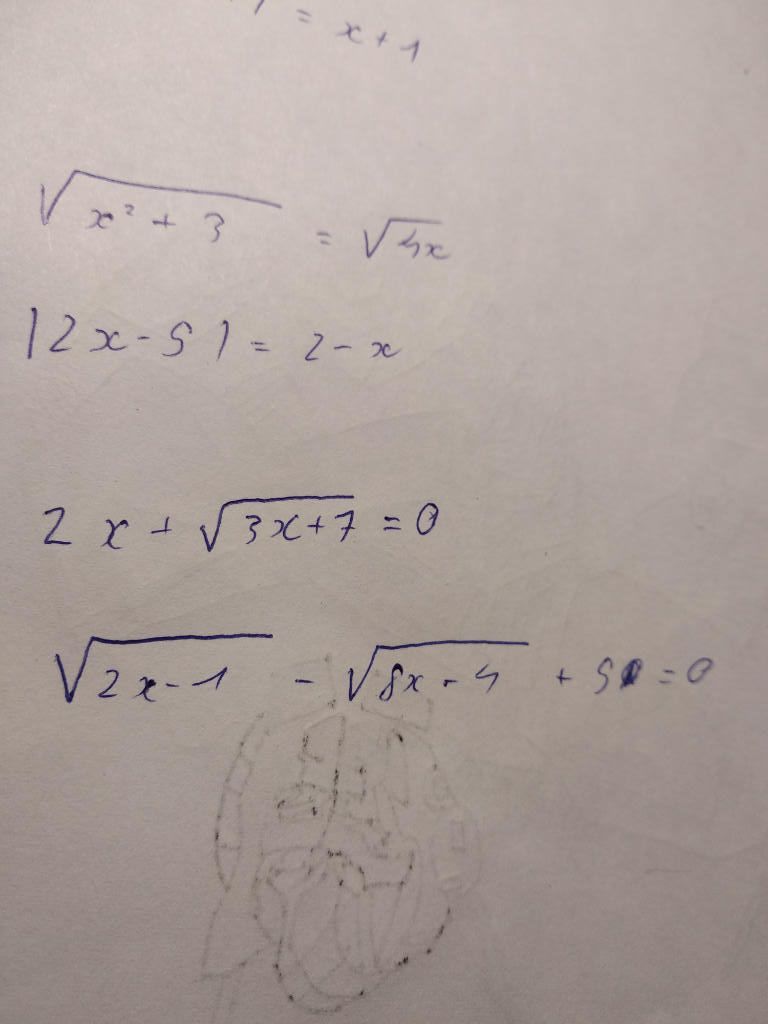 = x + 1
√(x² + 3) = √(4x)
|2x - 5| = 2 - x
2x + √(3x+7) = 0
√(2x-1) - √(8x-4) + 5 = 0